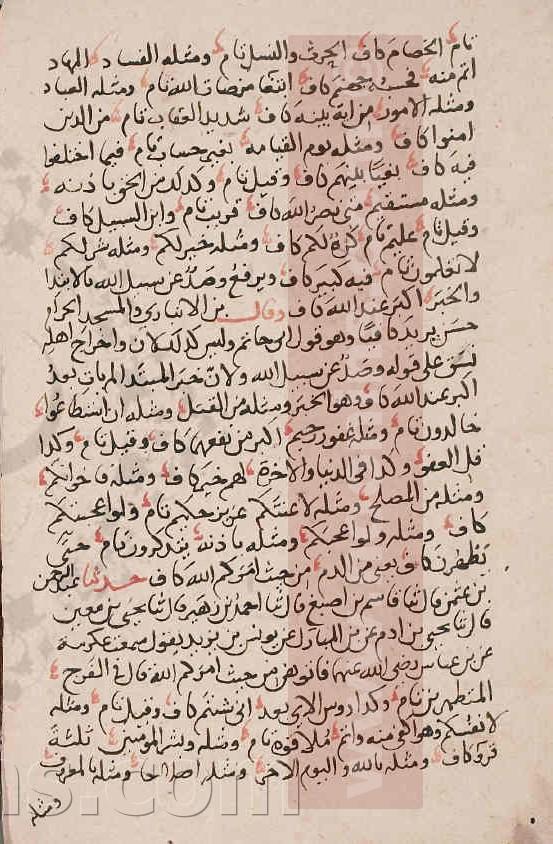 تام الخصام كاف الحرث والنسل تام ومثله الفساد المهاد
اتم منه فحسبه جهنم كاف ابتغا مرضات الله تام ومثله العباد
ومثله الامور من اية بينة كاف شديد العقاب تام من الذين
امنوا كاف ومثله يوم القيامة بغير حساب تام فيما اختلفوا
فيه كاف بغيا بينهم كاف وقيل تام وكذلك من الحق باذنه
ومثله مستقيم متى نصر الله كاف قريب تام وابن السبيل كاف
وقيل تام عليم تام كره لكم كاف ومثله خير لكم ومثله شر لكم
لا تعلمون تام فيه كبير كاف ويرفع وصد عن سبيل الله بالابتدا
والخبر اكبر عند الله كاف وقال بن الانباري والمسجد الحرام
حسن يريد كافيا وهو قول ابي حاتم وليس كذلك لان واخراج اهله
نسق على قوله وصد عن سبيل الله ولان خبر المبتدا لم يات بعد
اكبر عند الله كاف وهو الخبر ومثله من القتل ومثله ان استطاعوا
خالدون تام ومثله غفور رحيم اكبر من نفعهما كاف وقيل تام وكذا
قل العفو وكذا في الدنيا والاخرة لهم خير كاف ومثله فاخوانكم
ومثله من المصلح ومثله لاعنتكم عزيز حكيم تام ولو اعجبتكم
كاف ومثله ولو اعجبكم ومثله باذنه يتذكرون تام حتى
يطهرن كاف يعني من الدم من حيث امركم الله كاف حدثنا عبد الرحمن
بن عثمن قال ثنا قاسم بن اصبغ قال ثنا احمد بن زهير قال ثنا يحيى بن معين
قال ثنا يحيى بن ادم عن بن المبارك عن يونس بن يزيد يقول سمعت عكرمة
عن بن عباس رضي الله عنهما فاتوهن من حيث امركم الله قال في الفرج
المتطهرين تام وكذا روس الاي بعد انى شئتم كاف وقيل تام ومثله
لانفسكم وهو اكفى منه واتم ملاقوه تام ومثله وبشر المومنين ثلثة
قروء كاف ومثله بالله واليوم الاخر ومثله اصلاحا ومثله بالمعروف
ومثله